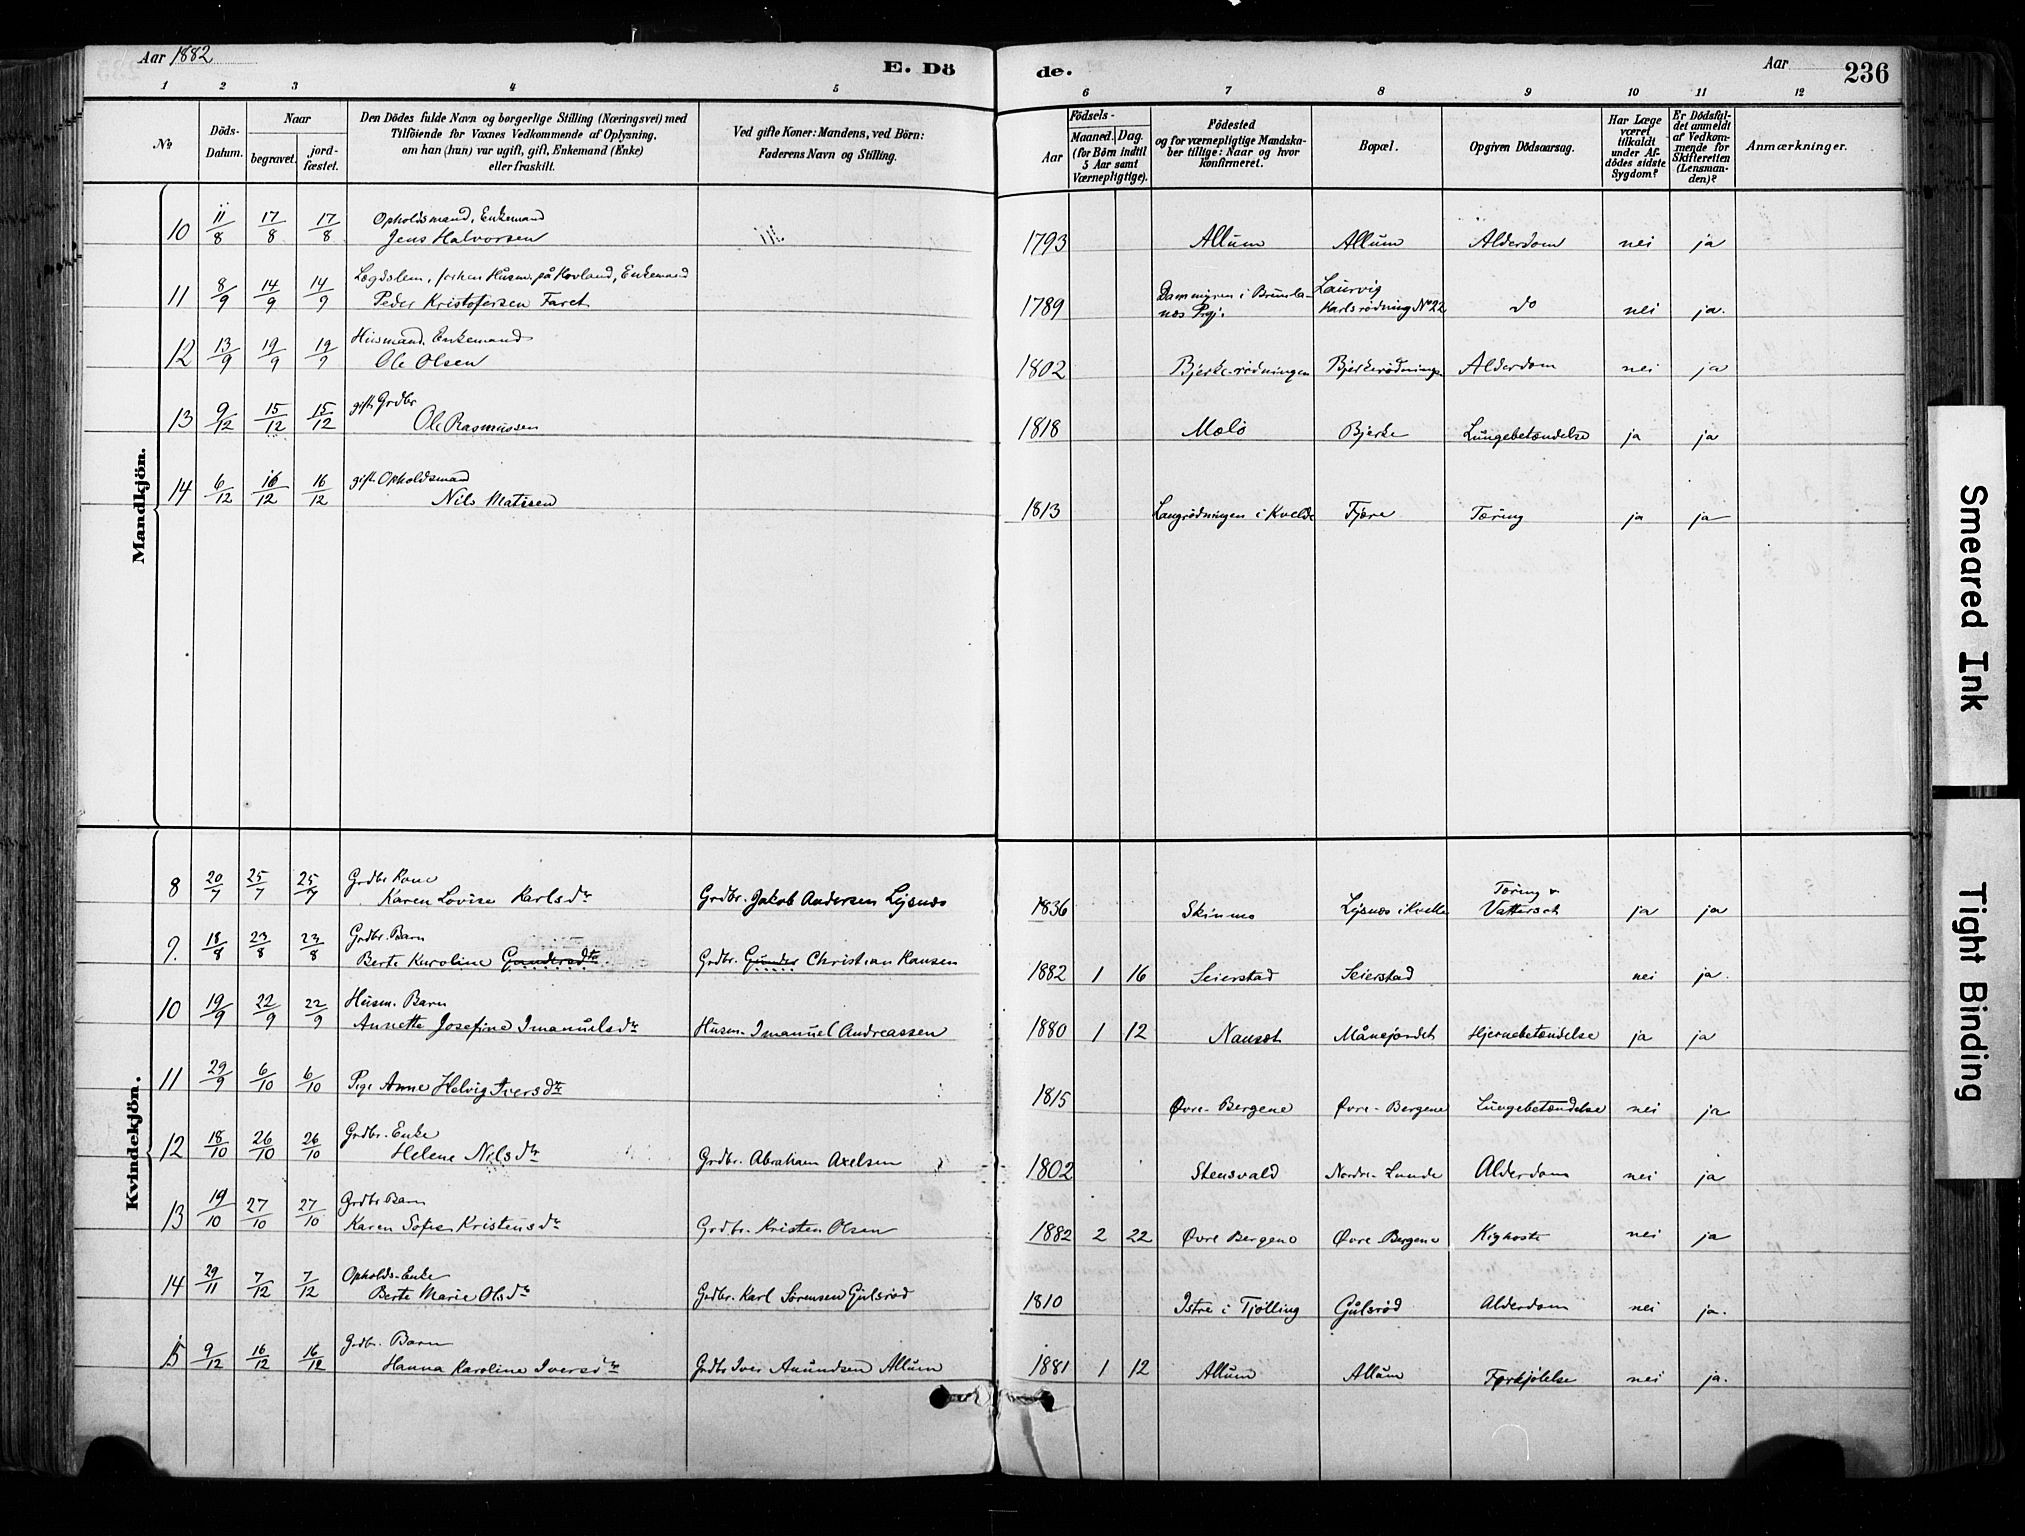 Aar 1882
E. Dö
de.
Aar
236
1 2 3 4 5 6 7 8 9 10 11 12
No
Döds-
Datum.
Naar
begravet.
jord-
fæstet.
Den Dödes fulde Navn og borgerlige Stilling (Næringsvei) med
Tilföiende for Voxnes Vedkommende af Oplysning,
om han (hun) var ugift, gift, Enkemand (Enke)
eller fraskilt.
Ved gifte Koner: Mandens, ved Börn:
Faderens Navn og Stilling.
Födsels-
Aar
Maaned.
Dag.
(for Börn indtil
5 Aar samt
Værnepligtige).
Födested
og for værnepligtige Mandska-
ber tillige: Naar og hvor
konfirmeret.
Bopæl.
Opgiven Dödsaarsag.
Har Læge
været
tilkaldt
under Af-
dödes sidste
Sygdom?
Er Dödsfal-
det anmeldt
af Vedkom-
mende for
Skifteretten
(Lensman-
den)?
Anmærkninger.
Mandkjön.
10 11/8 17/8 17/8 Opholdsmand, Enkemand
Jens Halvorsen 1793 Allum Allum Alderdom nei ja
11 8/9 14/9 14/9 Lægdslem, Husm. på Hovland, Enkemand
Peder Kristofersen Faret 1789 i Brunla-
næs Prgj. Laurvig
Karlsrødning No 22 do nei ja.
12 13/9 19/9 19/9 Husmand, Enkemand
Ole Olsen 1802 Bjerke-rødningen Bjerkerødningen Alderdom nei ja
13 9/12 15/12 15/12 gift Grdbr
Ole Rasmussen 1818 Melø Bjerke Lungebetændelse ja ja
14 6/12 16/12 16/12 gift Opholdsmand
Nils Matisen 1813 Langrødningen i Kvelde Fjære Tæring ja ja
Kvindekjön.
8 20/7 25/7 25/7 Grdbr Kone
Karen Lovise Karlsdtr Grdbr. Jakob Andersen Lysnæs 1836 Skinmo Lysnæs i Kvelle Tæring &
Vattersot ja ja
9. 18/8 23/8 23/8 Grdbr. Barn
Berte Karoline Gundersdtr. Grdbr. Gunder Christian Hansen 1882 1 16 Seierstad Seierstad nei ja.
10 19/9 22/9 22/9 Husm. Barn
Annette Josefine Imanuelsdtr Husm. Imanuel Andreassen 1880 1 12 Nansæt Månejordet Hjernebetændelse ja ja
11 29/9 6/10 6/10 Pige Anne Helvig Iversdtr 1815 Øvre-Bergene Øvre-Bergene Lungebetændelse nei ja
12 18/10 26/10 26/10 Grdbr. Enke
Helene Nilsdtr Grdbr. Abraham Axelsen 1802 Stensvald Nordre-Lunde Alderdom nei ja
13 19/10 27/10 27/10 Grdbr Barn
Karen Sofie Kristensdtr Grdbr. Kristen Olsen 1882 2 22 Øvre Bergene Øvre Bergene Kighoste nei ja
14 29/11 7/12 7/12 Opholds-Enke
Berte Marie Olsdtr Grdbr. Karl Sørensen Gulsrød 1810 Istre i Tjølling Gulsrød Alderdom nei ja.
15 9/12 16/12 16/12 Grdbr. Barn
Hanna Karoline Iversdtr Grdbr Iver Amundsen Allum 1881 1 12 Allum Allum Forkjølelse nei ja.
Smeared Ink
Tight Binding